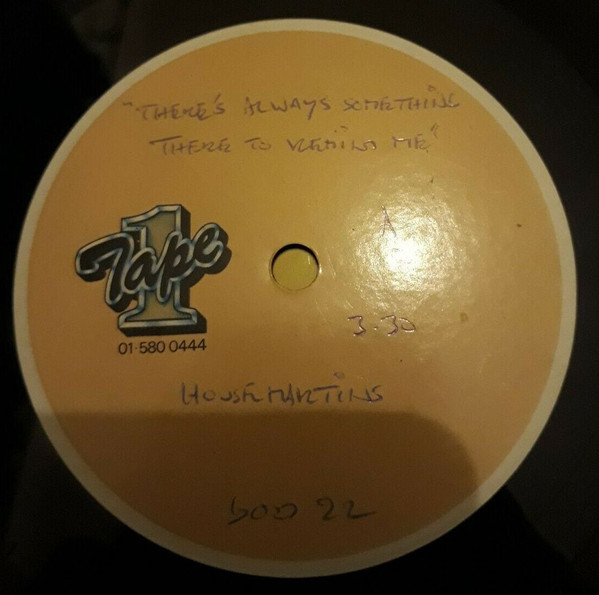 "THERE'S ALWAYS SOMETHING
THERE TO REMIND ME"
1
Tape
A
01-580 0444
3.30
HOUSEMARTINS
GOD 22